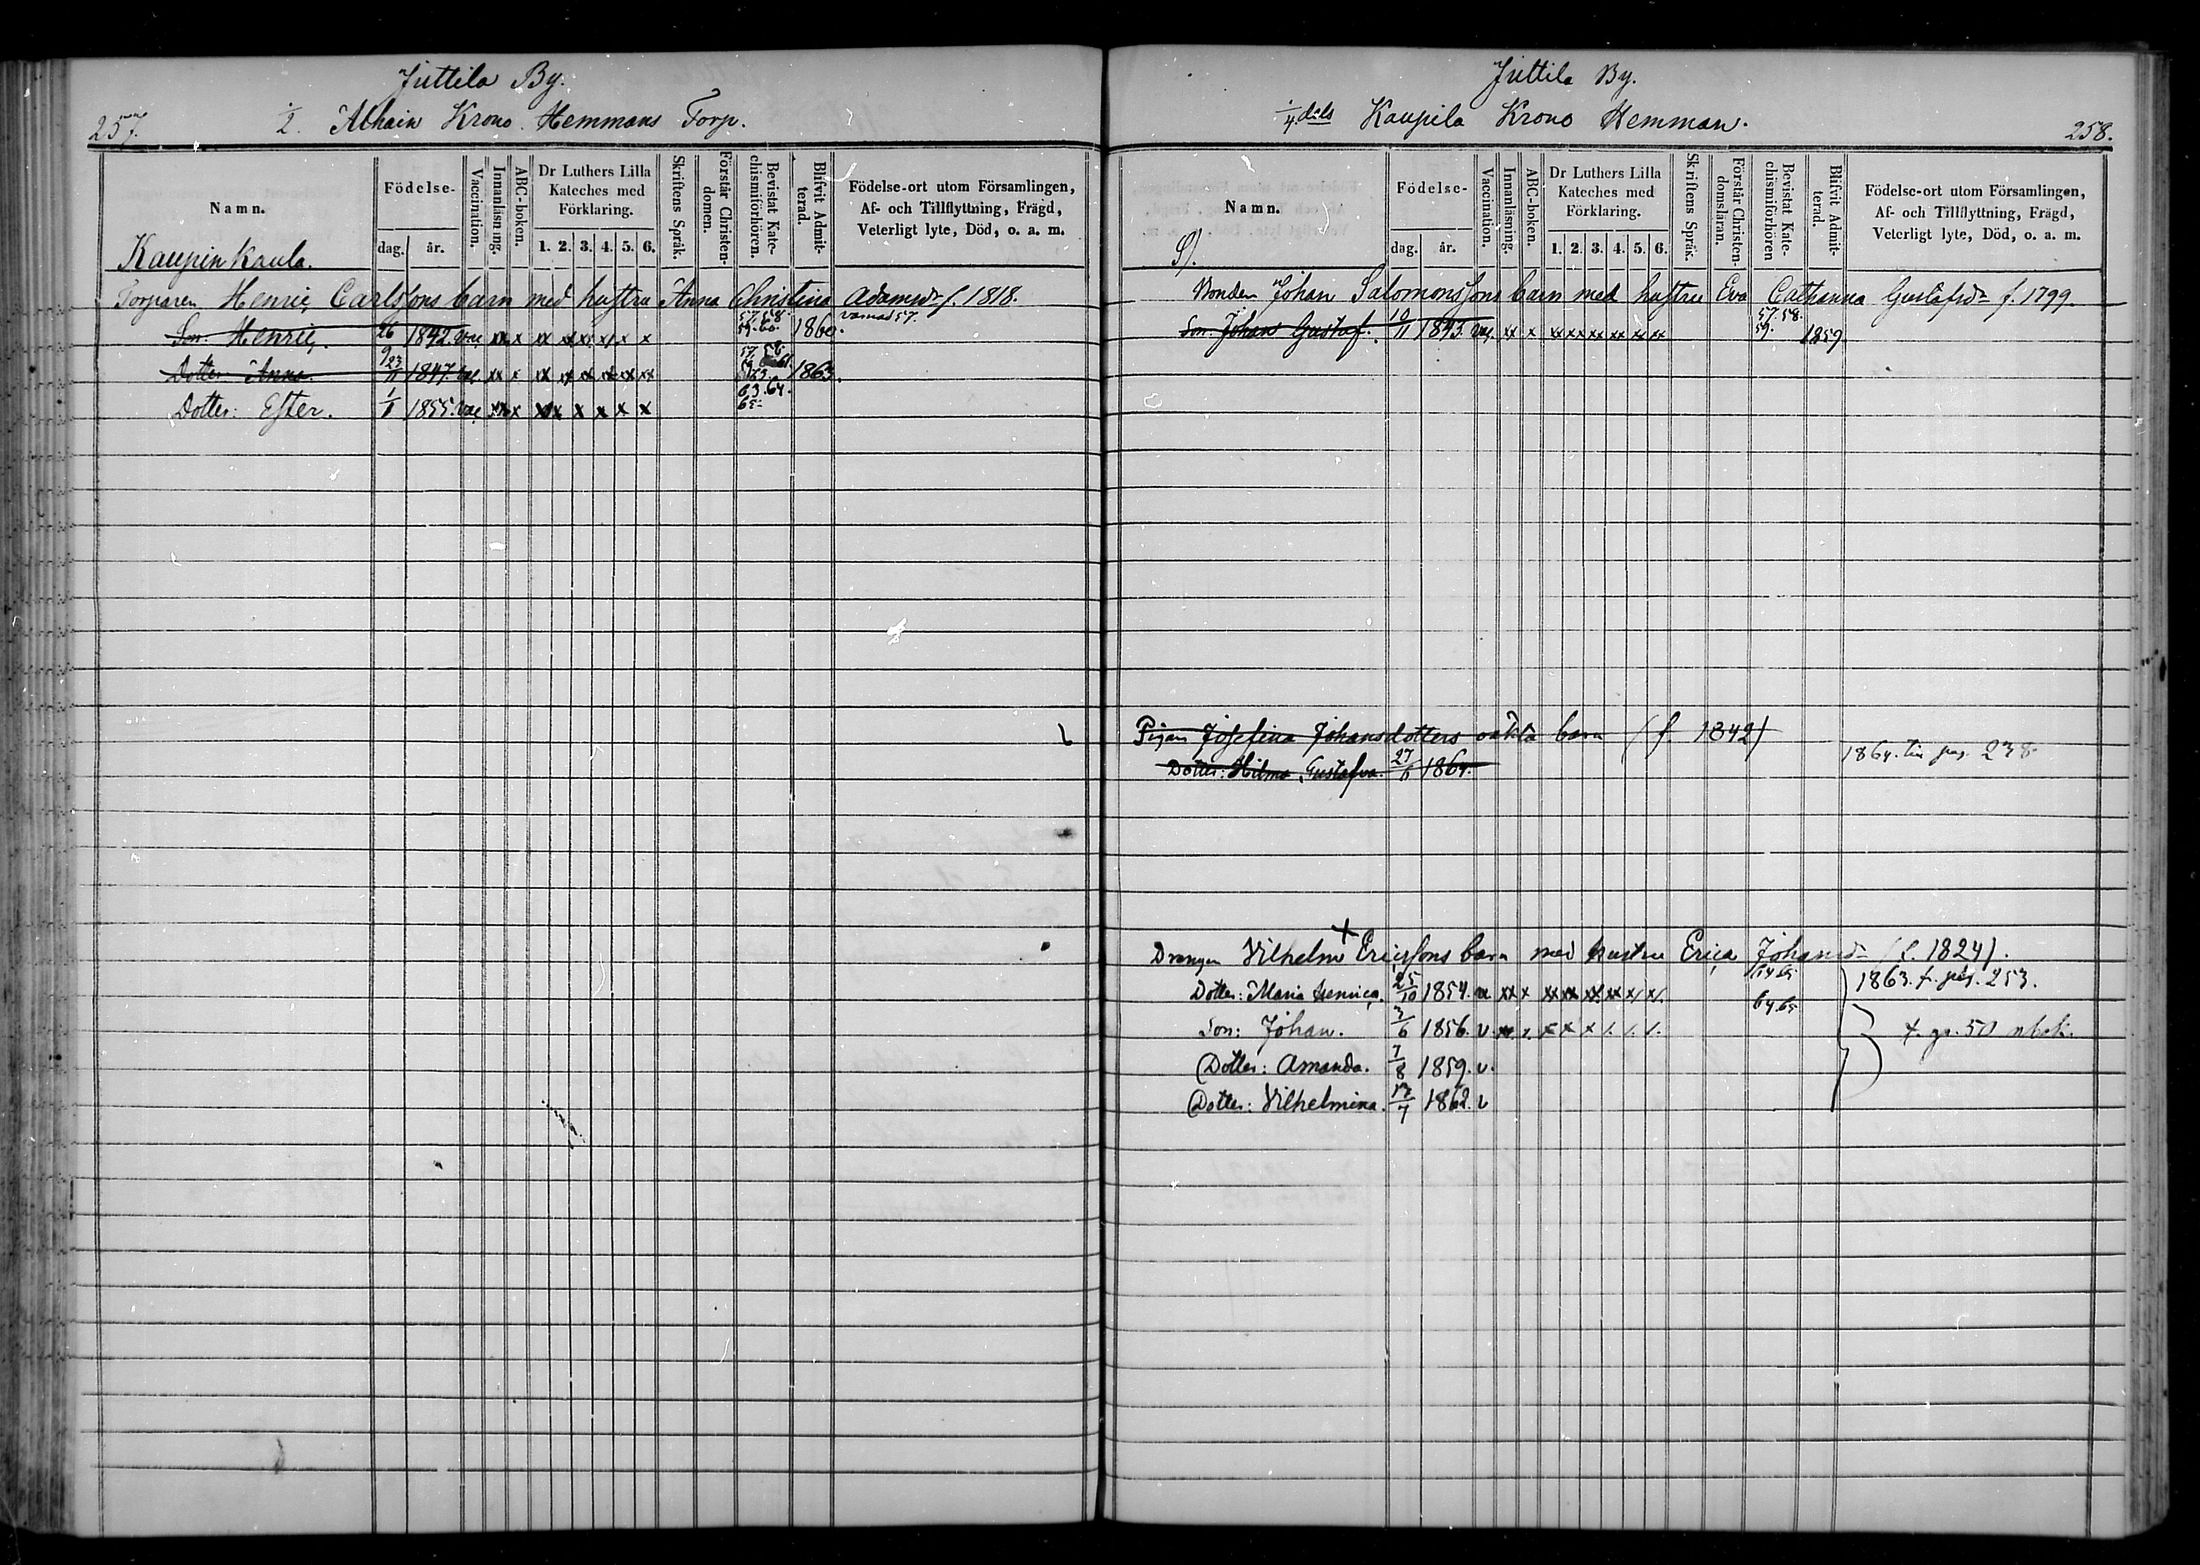 Juttila By.
257.
1/2 Alhain Krono Hemmans Torp.
Namn.
Födelse-
dag.
år.
Vaccination.
Innanläsning.
ABC-boken.
Dr Luthers Lilla Kateches med Förklaring.
1. 2. 3. 4. 5. 6.
Skriftens Språk.
Förstår Christendomen.
Bevistat Katechismiförhören.
Blifvit Admitterad.
Födelse-ort utom Församlingen,
Af- och Tillflyttning, Frägd,
Veterligt lyte, Död, o. a. m.
Kaupin kaula.
Torparen Henric Carlssons barn med hustru Anna Christina Adamsdr f. 1818.
Son: Henric, 26/9 1842. vac xx x xx xx xx x x x 57. 58. 59. 60. 1860.
Dotter: Anna. 23/11 1847. vac xx x xx xx xx xx xx xx 1863.
Dotter: Ester. 1/1 1855. vac xx x xx x x x x x 63. 64. 65.
Juttila By.
1/4 dels Kaupila Krono Hemman.
258.
Namn.
Födelse-
dag.
år.
Vaccination.
Innanläsning.
ABC-boken.
Dr Luthers Lilla Kateches med Förklaring.
1. 2. 3. 4. 5. 6.
Skriftens Språk.
Förstår Christendomsläran.
Bevistat Katechismiförhören
Blifvit Admitterad.
Födelse-ort utom Församlingen,
Af- och Tillflyttning, Frägd,
Veterligt lyte, Död, o. a. m.
Bonden Johan Salomonssons barn med hustru Eva Catharina Gustafsdr f. 1799.
Son: Johan Gustaf. 10/11 1843. vac xx x xx xx xx xx xx xx 57. 58. 59. 1859
Pigan Josefina Johansdotters oäkta barn (f. 1842)
Dotter: Hilma Gustafva. 27/6 1864. 1864. till pag. 238.
Drängen Vilhelm Ericssons barn med hustru Erica Johansdr (f. 1824).
Dotter: Maria Henrica. 25/10 1854. v xx x xx xx xx xx x x 64 65 1863. f. pag. 253.
Son: Johan. 3/6 1856. v. xx x. x x x /. /. /. 64 65
Dotter: Amanda. 7/8 1859. v.
Dotter: Vilhelmina. 17/7 1862. v